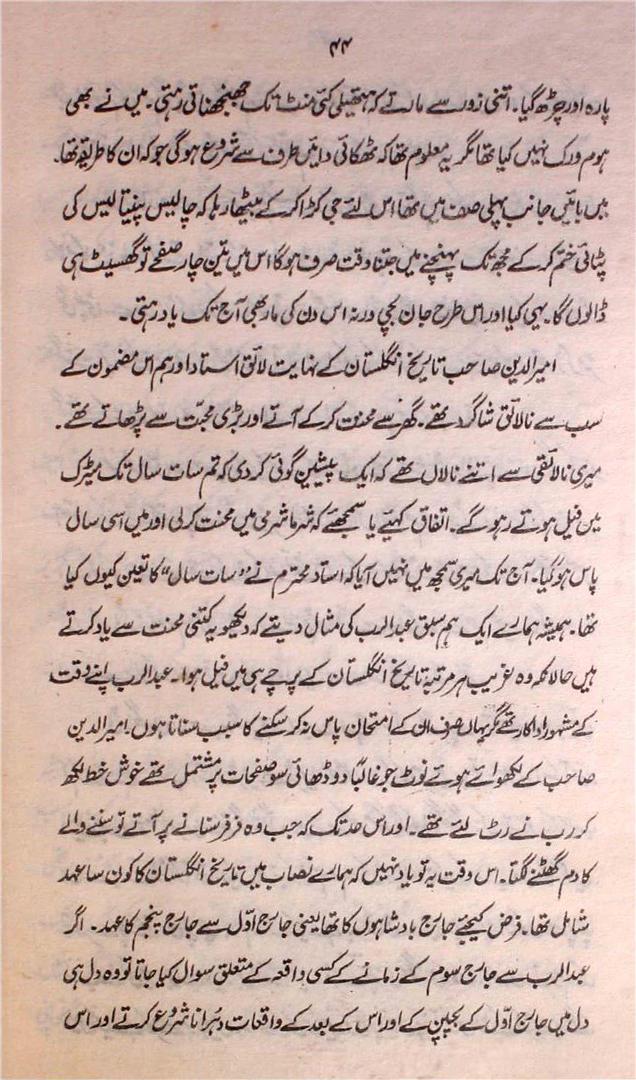 ۴۴
پارہ اور چڑھ گیا۔ اتنی زور سے مارتے کہ ہتھیلی کئی منٹ تک جھنجھناتی رہتی۔ میں نے بھی
ہوم ورک نہیں کیا تھا مگر یہ معلوم تھا کہ ٹھکائی دائیں طرف سے شروع ہوگی جو کہ ان کا طریقہ تھا۔
میں بائیں جانب پہلی صف میں تھا اس لئے جی کڑا کر کے بیٹھا رہا کہ چالیس پینتالیس کی
پٹائی ختم کر کے مجھ تک پہنچنے میں جتنا وقت صرف ہوگا اس میں تین چار صفحے تو گھسیٹ ہی
ڈالوں گا۔ یہی کیا اور اس طرح جان بچی ورنہ اس دن کی مار بھی آج تک یاد رہتی۔
امیر الدین صاحب تاریخ انگلستان کے نہایت لائق استاد اور ہم اس مضمون کے
سب سے نالائق شاگرد تھے۔ گھر سے محنت کر کے آتے اور بڑی محبت سے پڑھاتے تھے۔
میری نالائقی سے اتنے نالاں تھے کہ ایک پیشین گوئی کر دی کہ تم سات سال تک میٹرک
میں فیل ہوتے رہو گے۔ اتفاق کہیے یا سمجھئے کہ شرما شرمی میں محنت کر لی اور میں اسی سال
پاس ہو گیا۔ آج تک میری سمجھ میں نہیں آیا کہ استاد محترم نے "سات سال" کا تعین کیوں کیا
تھا۔ ہمیشہ ہمارے ایک ہم سبق عبدالرب کی مثال دیتے کہ دیکھو یہ کتنی محنت سے یاد کرتے
ہیں حالانکہ وہ غریب ہر مرتبہ تاریخ انگلستان کے پرچے ہی میں فیل ہوا۔ عبدالرب اپنے وقت
کے مشہور اداکار تھے مگر یہاں صرف ان کے امتحان پاس نہ کر سکنے کا سبب سناتا ہوں۔ امیر الدین
صاحب کے لکھوائے ہوئے نوٹ جو غالباً دو ڈھائی سو صفحات پر مشتمل تھے خوش خط لکھ
کر رب نے رٹ لئے تھے۔ اور اس حد تک کہ جب وہ فرفر سنانے پر آتے تو سننے والے
کا دم گھٹنے لگتا۔ اس وقت یہ تو یاد نہیں کہ ہمارے نصاب میں تاریخ انگلستان کا کون سا عہد
شامل تھا۔ فرض کیجئے جارج بادشاہوں کا تھا یعنی جارج اوّل سے جارج پنجم کا عہد۔ اگر
عبدالرب سے جارج سوم کے زمانے کے کسی واقعہ کے متعلق سوال کیا جاتا تو وہ دل ہی
دل میں جارج اوّل کے بچپن کے اور اس کے بعد کے واقعات دہرانا شروع کرتے اور اس